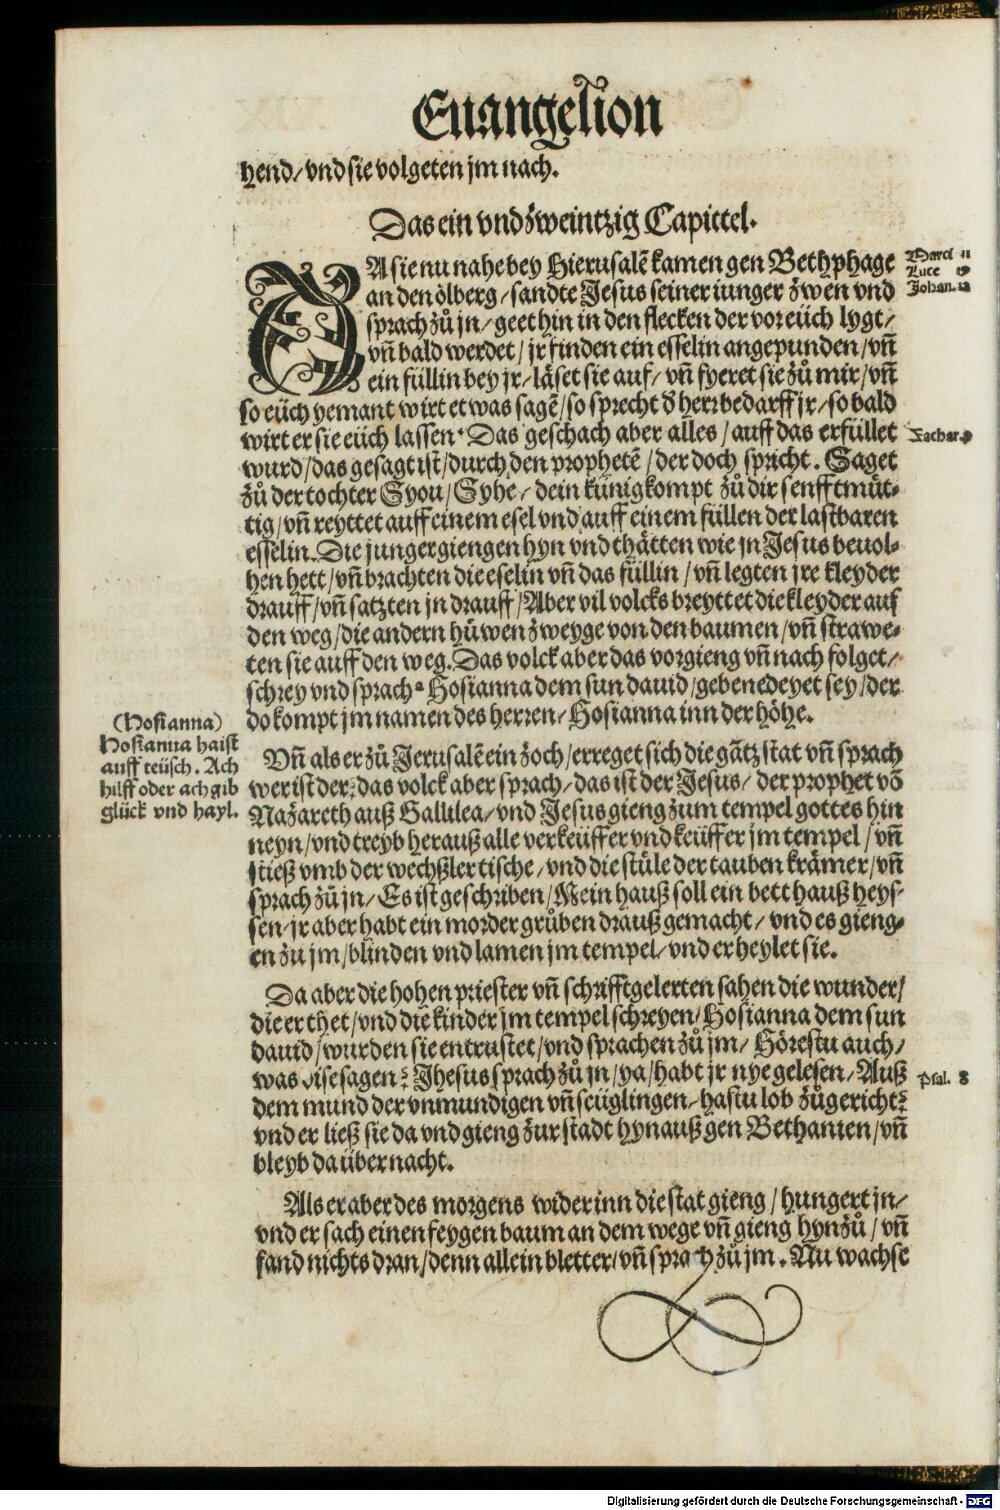 Euangelion
hend/ vnd sie volgeten jm nach.
Das ein vnd zweintzig Capittel.
DA sie nu nahe bey Hierusalē kamen gen Bethphage
an den ölberg/ sandte Jesus seiner iunger zwen vnd
sprach zů jn/ geet hin in den flecken der vor eüch lygt/
vñ bald werdet/ jr finden ein esselin angepunden/ vñ
ein füllin bey jr/ läset sie auf/ vñ fyeret sie zů mir/ vñ
so eüch yemant wirt etwas sagē/ so sprecht d̄ herr bedarff jr/ so bald
wirt er sie eüch lassen. Das geschach aber alles/ auff das erfüllet
wurd/ das gesagt ist/ durch den prophetē/ der doch spricht. Saget
zů der tochter Syou/ Syhe/ dein künig kompt zů dir senfftmüt-
tig/ vñ reyttet auff einem esel vnd auff einem füllen der lastbaren
esselin. Die junger giengen hyn vnd thätten wie jn Jesus beuol-
hen hett/ vñ brachten die eselin vñ das füllin/ vñ legten jre kleyder
drauff/ vñ satzten jn drauff/ Aber vil volcks breyttet die kleyder auf
den weg/ die andern hüwen zweyge von den baumen/ vñ strawe-
ten sie auff den weg. Das volck aber das vorgieng vñ nach folget/
schrey vnd sprach Hosianna dem sun dauid/ gebenedeyet sey/ der
do kompt jm namen des herren/ Hosianna inn der höhe.
Vñ als er zů Jerusalē ein zoch/ erreget sich die gātz stat vñ sprach
wer ist der? das volck aber sprach/ das ist der Jesus/ der prophet vō
Nazareth auß Gallilea/ vnd Jesus gieng zum tempel gottes hin
neyn/ vnd treyb herauß alle verkeüffer vnd keüffer jm tempel/ vñ
stieß vmb der wechßler tische/ vnd die stüle der tauben krämer/ vñ
sprach zů jn/ Es ist geschriben/ Mein hauß soll ein bett hauß heys-
sen/ jr aber habt ein morder grůben drauß gemacht/ vnd es gieng-
en zu jm/ blinden vnd lamen jm tempel/ vnd er heylet sie.
Da aber die hohen priester vñ schrifftgelerten sahen die wunder/
die er thet/ vnd die kinder jm tempel schreyen/ Hosianna dem sun
dauid/ wurden sie entrustet/ vnd sprachen zů jm/ Hörestu auch/
was dise sagen? Jhesus sprach zů jn/ ya/ habt jr nye gelesen/ Auß
dem mund der vnmundigen vñ seüglingen/ hastu lob zůgericht?
vnd er ließ sie da vnd gieng zur stadt hynauß gen Bethanien/ vñ
bleyb da über nacht.
Als er aber des morgens wider inn die stat gieng/ hungert jn/
vnd er sach einen feygen baum an dem wege vñ gieng hynzů/ vñ
fand nichts dran/ denn allein bletter/ vñ sprach zů jm. Nu wachse
Marci 11
Luce 19
Johan. 12
Zachar. 9
Psal. 8
(Hosianna)
Hosianna haist
auff teüsch. Ach
hilff oder ach gib
glück vnd hayl.
Digitalisierung gefördert durch die Deutsche Forschungsgemeinschaft - DFG